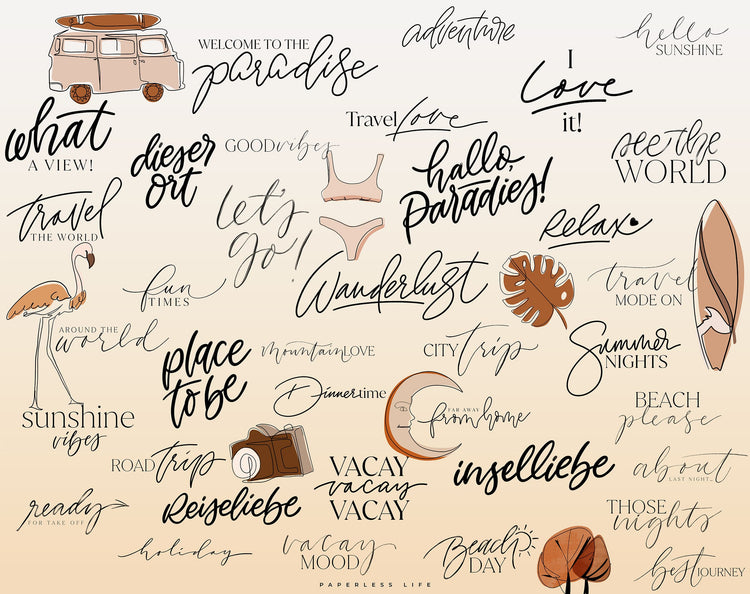 adventure
hello
SUNSHINE
WELCOME TO THE
paradise
I
Love
it!
Travel Love
what
A VIEW!
dieser
ort
GOOD vibes
hallo,
Paradies!
see the
WORLD
travel
THE WORLD
let's
go!
Relax
fun
TIMES
Wanderlust
travel
MODE ON
AROUND THE
world
place
to be
mountain LOVE
CITY trip
Summer
NIGHTS
Dinnertime
sunshine
vibes
FAR AWAY
from home
BEACH
please
ROAD trip
VACAY
vacay
VACAY
inselliebe
about
LAST NIGHT...
ready
FOR TAKE OFF
Reiseliebe
THOSE
nights
holiday
vacay
MOOD
Beach
DAY
best JOURNEY
PAPERLESS LIFE